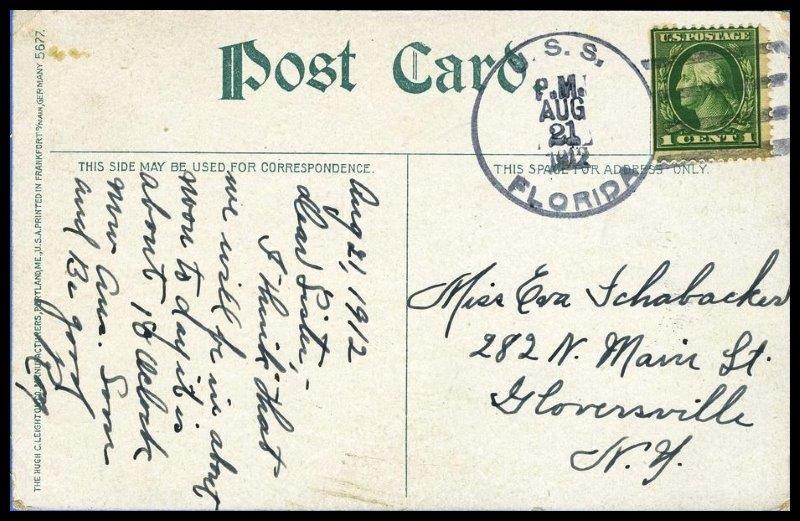 Post Card
U.S.S.
P.M.
AUG
21
1912
FLORIDA
U.S. POSTAGE
1 CENT 1
THIS SIDE MAY BE USED FOR CORRESPONDENCE.
THIS SPACE FOR ADDRESS ONLY.
Aug 21, 1912
Dear Sister,-
I think that
we will be in about
noon to day it is
about 10 Oclock
now Ans. Soon
and Be good
Miss Eva Schabacker
282 N. Main St.
Gloversville
N.Y.
THE HUGH C. LEIGHTON CO., MANUFACTURERS, PORTLAND, ME., U.S.A. PRINTED IN FRANKFORT o/MAIN, GERMANY 5677.